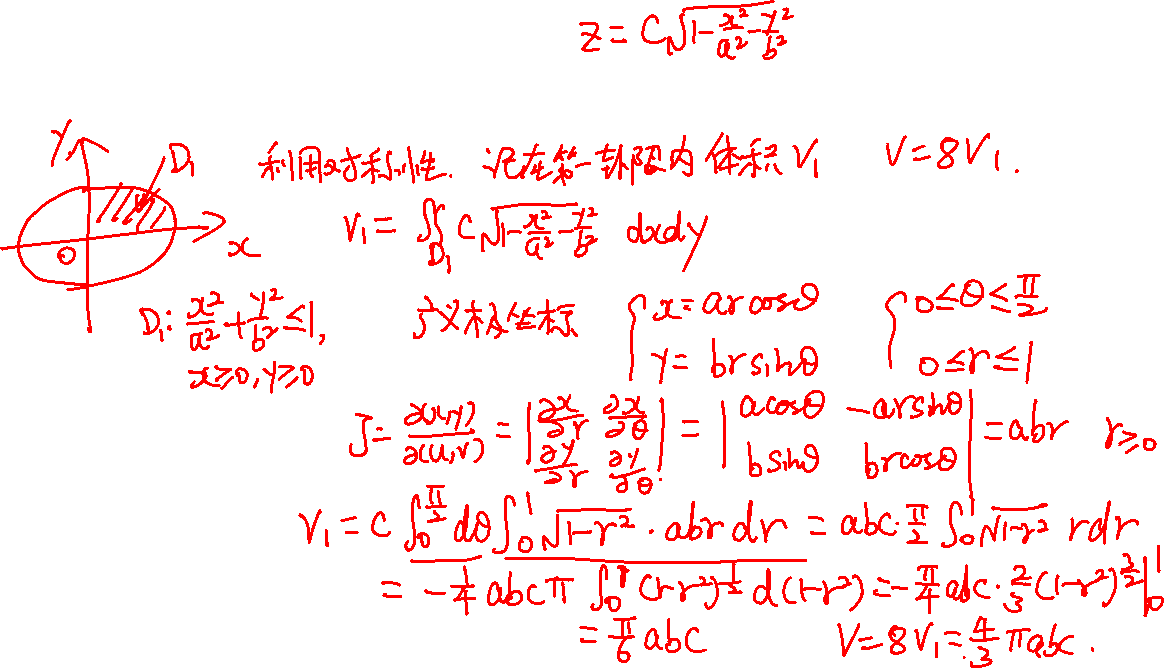 z = c√(1-x²/a²-y²/b²)
y
D₁
x
O
利用对称性. 记在第一卦限内体积 V₁ V=8V₁.
V₁ = ∬_D₁ c√(1-x²/a²-y²/b²) dxdy
D₁: x²/a²+y²/b²≤1,
x≥0, y≥0
广义极坐标 { x=arcosθ { 0≤θ≤π/2
y=brsinθ 0≤r≤1
J = ∂(x,y)/∂(u,v) = |∂x/∂r ∂x/∂θ; ∂y/∂r ∂y/∂θ| = |acosθ -arsinθ; bsinθ brcosθ| = abr r≥0
V₁ = c∫₀^(π/2) dθ ∫₀¹ √(1-r²)·abr dr = abc·π/2 ∫₀¹ √(1-r²) rdr
= -1/4 abcπ ∫₀¹ (1-r²)^(1/2) d(1-r²) = -π/4 abc·2/3 (1-r²)^(3/2)|₀¹
= π/6 abc V=8V₁=4/3 πabc.